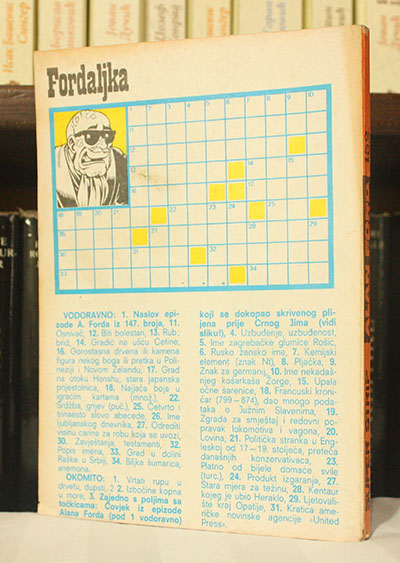 Fordaljka
1 2 3 4 5 6 7 8 9 10
11
12
13
14
15 16
17
18 19 20 21 22 23 24 25
26 27
28 29 30 31
32 33
34
VODORAVNO: 1. Naslov epi-
zode A. Forda iz 147. broja, 11.
Osnivač, 12. Biti bolestan, 13. Rub;
brid, 14. Gradić na ušću Cetine,
16. Gorostasna drvena ili kamena
figura nekog boga ili pretka u Poli-
neziji i Novom Zelandu, 17. Grad
na otoku Honshu, stara japanska
prijestolnica, 18. Najjača boja u
igraćim kartama (množ.), 22.
Srdžba, gnjev (puč.), 25. Četvrto i
trinaesto slovo abecede, 26. Ime
ljubljanskog dnevnika, 27. Odrediti
visinu carine za robu koja se uvozi,
30. Zavještanja, testamenti, 32.
Popis imena, 33. Grad u dolini
Raške u Srbiji, 34. Biljka šumarica,
anemona.
OKOMITO: 1. Vrtati rupu u
drvetu, dupsti, 2. Izbočine kopna
u more, 3. Zajedno s poljima sa
točkicama: Čovjek iz epizode
Alana Forda (pod 1 vodoravno)
koji se dokopao skrivenog pli-
jena prije Crnog Jima (vidi
sliku!), 4. Uzbuđenje, uzbuđenost,
5. Ime zagrebačke glumice Rošić,
6. Rusko žensko ime, 7. Kemijski
element (znak Nt), 8. Pljačka, 9.
Znak za germanij, 10. Ime nekadaš-
njeg košarkaša Zorge, 15. Upala
očne šarenice, 18. Francuski kroni-
čar (799—874), dao mnogo poda-
taka o Južnim Slavenima, 19.
Zgrada za smještaj i redovni po-
pravak lokomotiva i vagona, 20.
Lovina, 21. Politička stranka u Eng-
leskoj od 17—19. stoljeća, preteča
današnjih konzervativaca, 23.
Platno od bijele domaće svile
(turc.), 24. Produkt izgaranja, 27.
Stara mjera za težinu, 28. Kentaur
kojeg je ubio Heraklo, 29. Ljetovali-
šte kraj Opatije, 31. Kratica ame-
ričke novinske agencije »United
Press«.